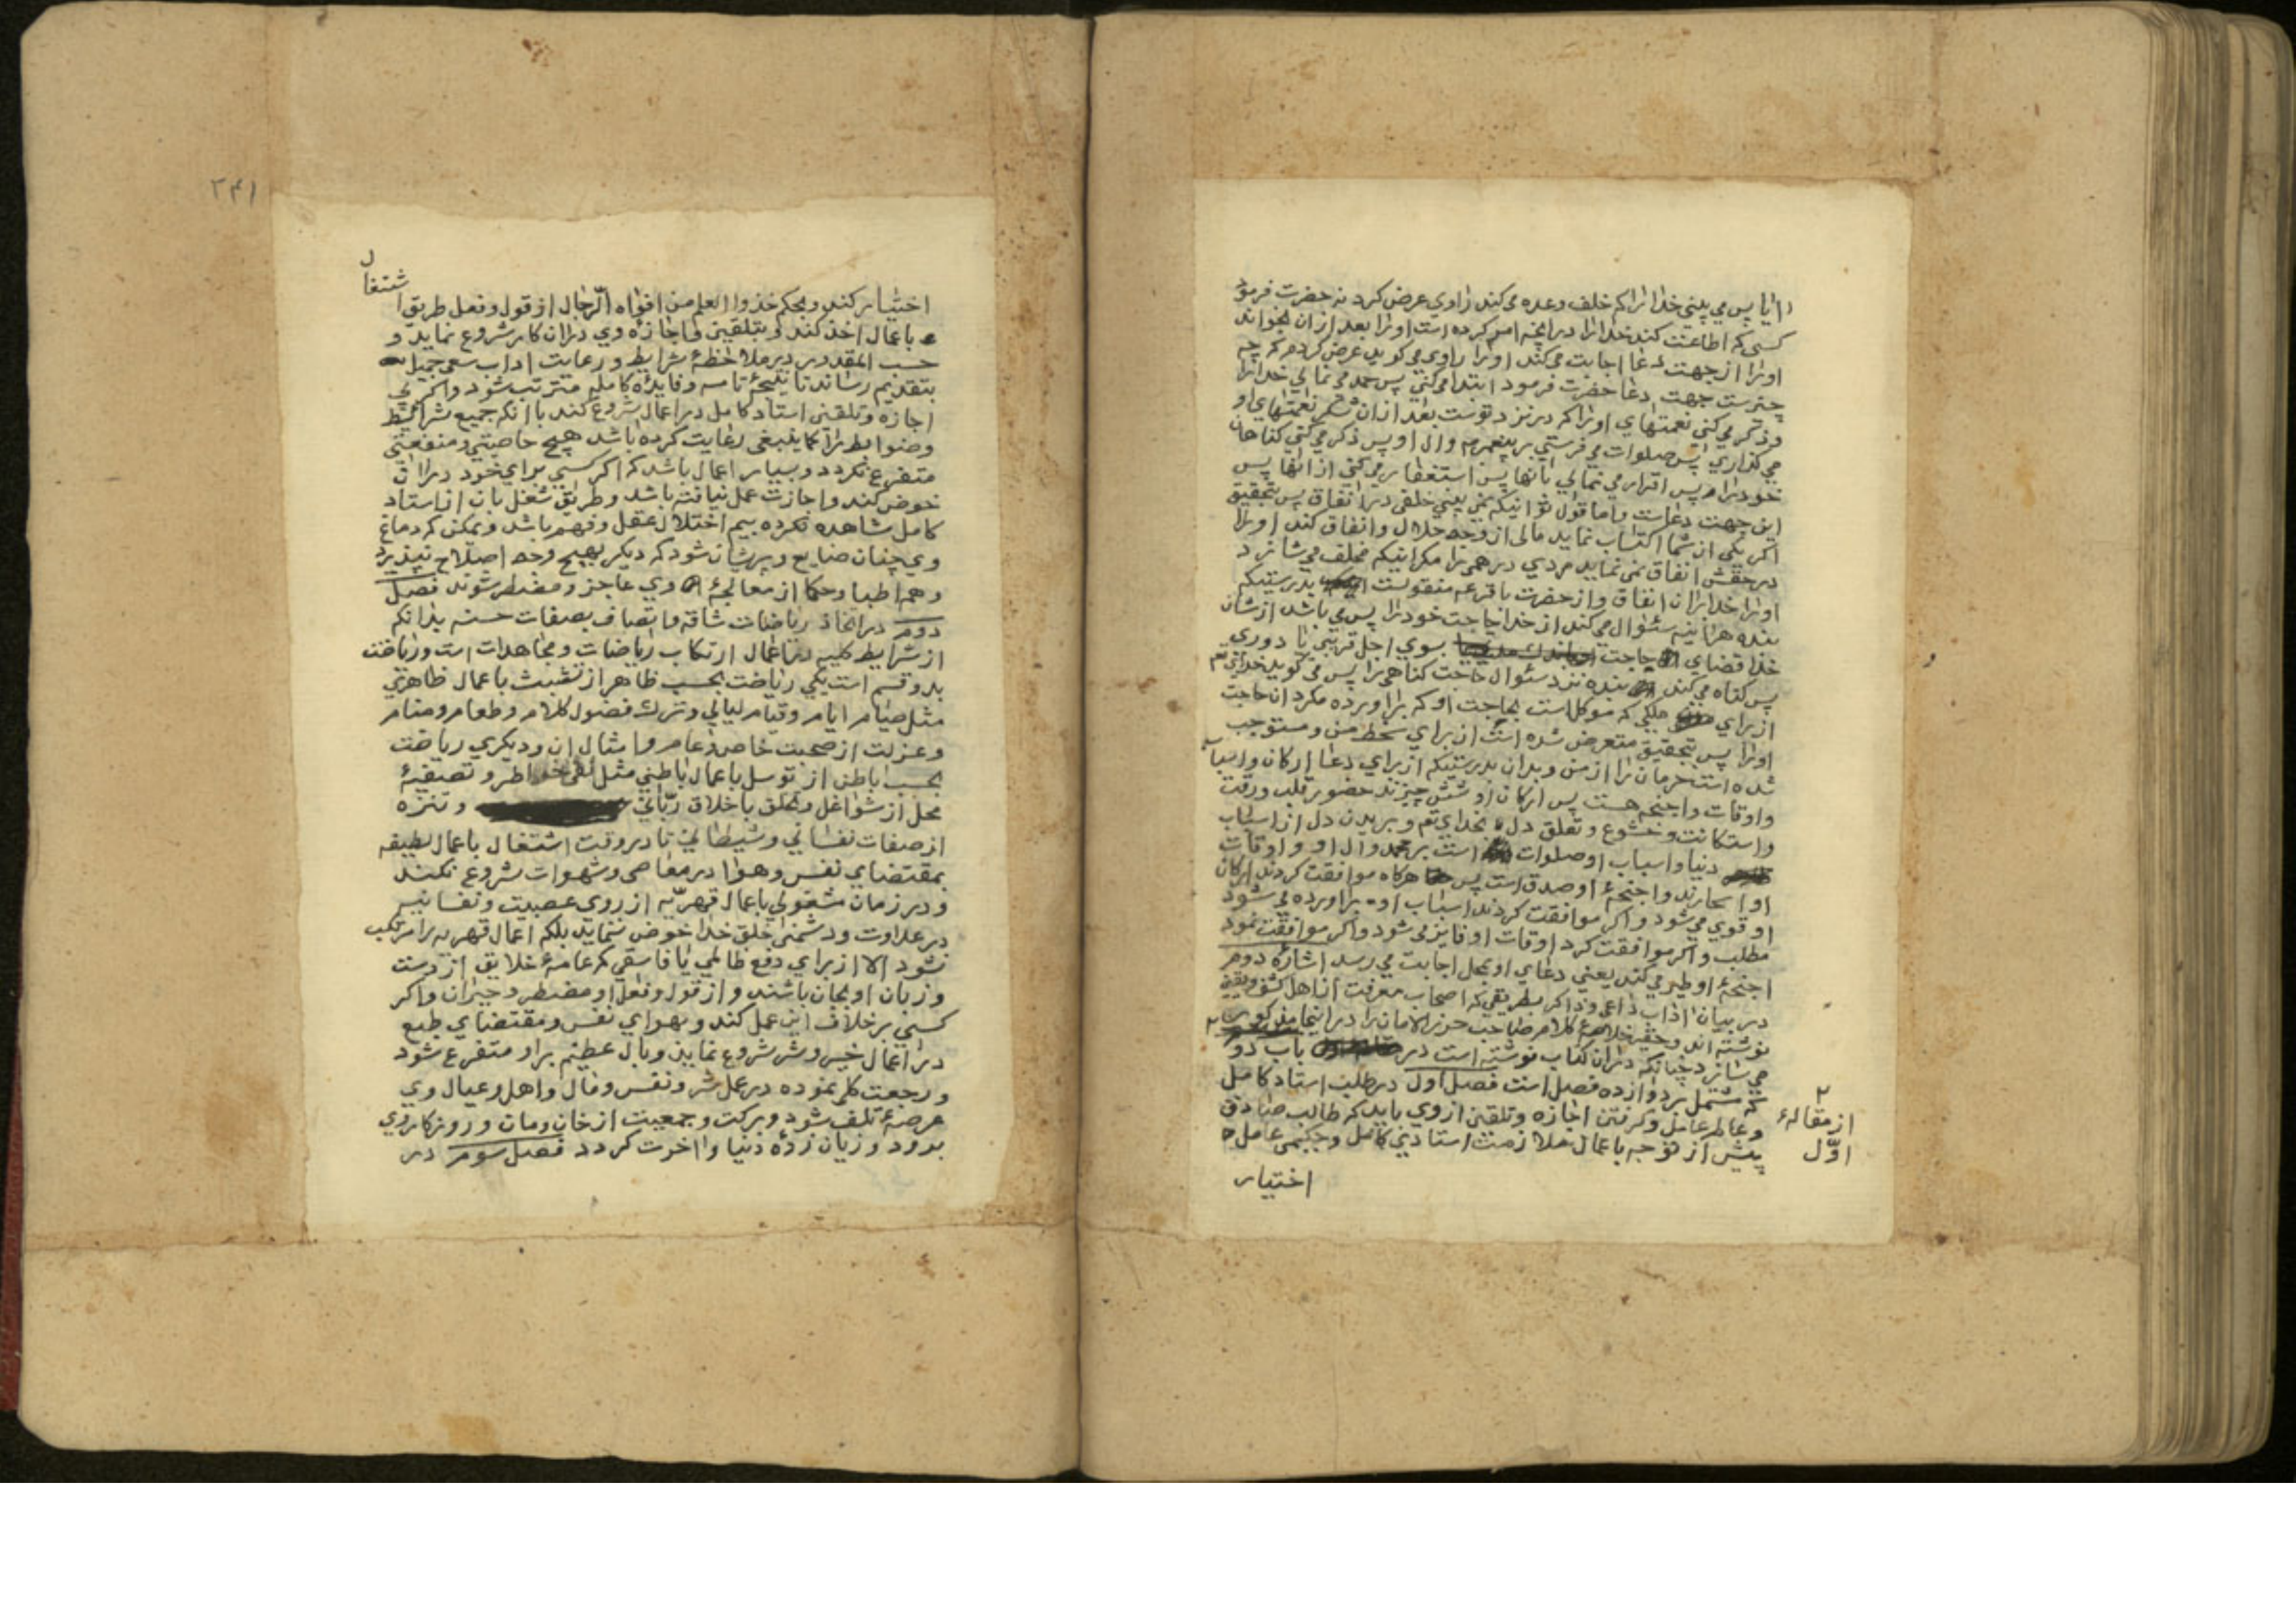 ایا پس می بینی خدا را که خلف وعده می کند راوی عرض کرد نه حضرت فرمود
کسی که اطاعت کند خدا را در انچه امر کرده است او را بعد از ان بخواند
او را از جهت دعا اجابت می کند او را راوی می گوید عرض کردم که چه
چیز است جهت دعا حضرت فرمود ابتدا می کنی پس حمد می نمائی خدا را
و ذکر می کنی نعمتهای او را که در نزد توست بعد از ان شکر نعمتهای او
می گذاری پس صلوات می فرستی بر پیغمبر و ال او پس ذکر می کنی گناهان
خود را پس اقرار می نمائی بانها پس استغفار می کنی از انها پس
این جهت دعاست و اما قول تو اینکه نمی بینی خلفی در انفاق پس بتحقیق
اگر یکی از شما اکتساب نماید مالی از وجه حلال و انفاق کند او را
در حقش انفاق نمی نماید مردی درهمی را مگر اینکه مخلف می سازد
او را خدا بر ان انفاق و از حضرت باقر عه منقولست بدرستیکه
بنده هراینه سئوال می کند از خدا حاجت خود را پس می باشد از شان
خدا قضای حاجت بسوی اجل قریبی یا دوری
پس گناه می کند بنده نزد سئوال حاجت گناهی را پس می گوید خدای تع
از برای ملکی که موکل است بحاجت او که برآورده مگردان حاجت
او را پس بتحقیق متعرض شده است از برای سخط من و مستوجب
شده است حرمان را از من و بدان بدرستیکه از برای دعا ارکان و اسباب
و اوقات و اجنحه هست پس ارکان او شش چیزند حضور قلب و رقت
و استکانت و خشوع و تعلق دل بخدای تع و بریدن دل از اسباب
دنیا و اسباب او صلوات است بر محمد و ال او و اوقات
او اسحارند و اجنحهٔ او صدق است پس هرگاه موافقت کردند ارکان
او قوی می شود و اگر موافقت کردند اسباب او برآورده می شود
مطلب و اگر موافقت کرد اوقات او فایز می شود و اگر موافقت نمود
اجنحهٔ او طیر می کند یعنی دعای او بمحل اجابت می رسد اشارهٔ دوم
در بیان اداب داعی و ذاکر بطریقی که اصحاب معرفت از اهل کشف و یقین
نوشته اند و حقیر خلاصهٔ کلام صاحب حرز الامان را در اینجا مذکور
می سازد چنانکه در ان کتاب نوشته است در باب دو
که مشتمل بر دوازده فصل است فصل اول در طلب استاد کامل
و عالم عامل و گرفتن اجازه و تلقین از وی باید که طالب صادق
پیش از توجه باعمال ملازمت استادی کامل و حکیمی عامل
اختیار
۲
از مقالهٔ
اوّل
۲۴۱
اشتغال
اختیار کند و بحکم خذوا العلم من افواه الرّجال از قول و فعل طریق
باعمال اخذ کند و بتلقین و اجازه وی در ان کار شروع نماید و
حسب المقدور در ملاحظهٔ شرایط و رعایت اداب سعی جمیل
بتقدیم رساند تا نتیجهٔ تامه و فایدهٔ کامله مترتب شود و اگر بی
اجازه و تلقین استاد کامل در اعمال شروع کند با انکه جمیع شرائط
و ضوابط را کما ینبغی رعایت کرده باشد هیچ خاصیتی و منفعتی
متفرع نگردد و بسیار اعمال باشد که اگر کسی برای خود در ان
خوض کند و اجازت عمل نیافته باشد و طریق شغل بان از استاد
کامل مشاهده نکرده بیم اختلال عقل و فهم باشد و ممکن که دماغ
وی چنان ضایع و پریشان شود که دیگر بهیچ وجه اصلاح نپذیرد
و همه اطبا و حکما از معالجهٔ وی عاجز و مضطر شوند فصل
دوم در اتخاذ ریاضات شاقه و اتصاف بصفات حسنه بدانکه
از شرایط کلیه در اعمال ارتکاب ریاضات و مجاهدات است و ریاضت
بدو قسم است یکی ریاضت بحسب ظاهر از تشبث باعمال ظاهری
مثل صیام ایام و قیام لیالی و ترک فضول کلام و طعام و منام
و عزلت از صحبت خاص و عام و امثال ان و دیگری ریاضت
بحسب باطن از توسل باعمال باطنی مثل نفی خواطر و تصفیهٔ
محل از شواغل و تخلق باخلاق ربّانی و تنزه
از صفات نفسانی و شیطانی تا در وقت اشتغال باعمال لطیفه
بمقتضای نفس و هوا در معاصی و شهوات شروع نکند
و در زمان مشغولی باعمال قهریّه از روی عصبیت و نفسانیت
در عداوت و دشمنی خلق خدا خوض ننماید بلکه اعمال قهریه را مرتکب
نشود الا از برای دفع ظالمی یا فاسقی که عامهٔ خلایق از دست
و زبان او بجان باشند و از قول و فعل او مضطر و حیران و اگر
کسی بر خلاف این عمل کند و بهوای نفس و مقتضای طبع
در اعمال خیر و شر شروع نماید وبال عظیم بر او متفرع شود
و رجعت کلی نموده در عمل شر و نفس و مال و اهل و عیال وی
عرصهٔ تلف شود و برکت و جمعیت از خان و مان و روزگار وی
برود و زیان زدهٔ دنیا و اخرت گردد فصل سوم در